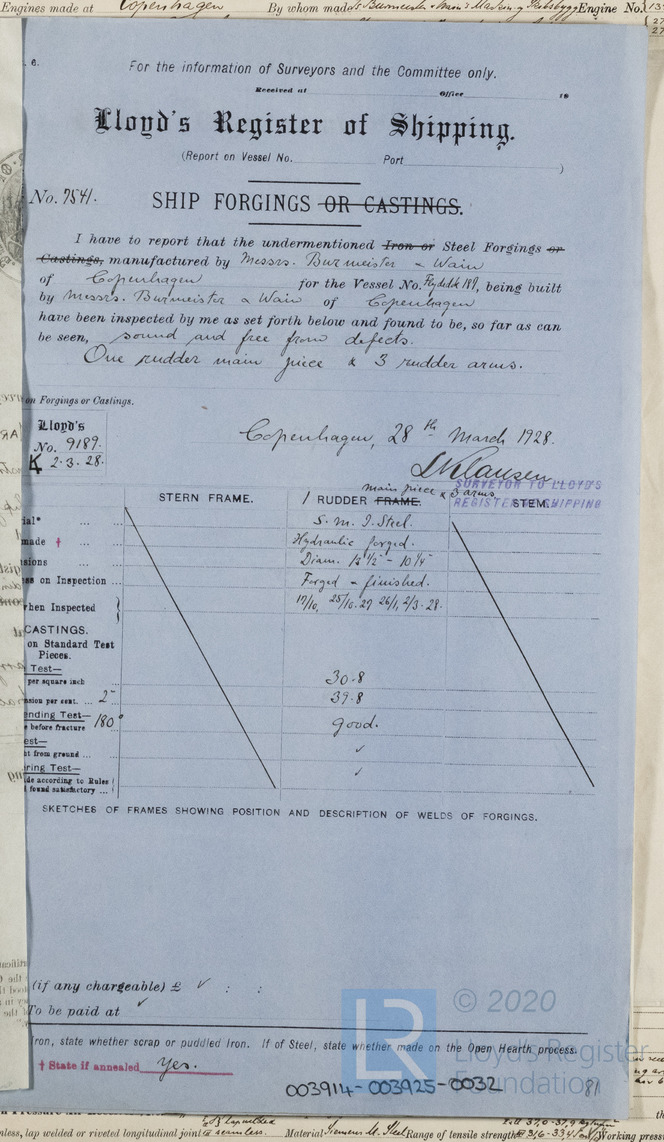 Engines made at Copenhagen By whom made Engine No.
6.
For the information of Surveyors and the Committee only.
Received at Office 19
Lloyd's Register of Shipping.
(Report on Vessel No. Port )
No. 7541.
SHIP FORGINGS OR CASTINGS.
I have to report that the undermentioned Iron or Steel Forgings or
Castings, manufactured by Messrs. Burmeister & Wain
of Copenhagen for the Vessel No. being built
by Messrs. Burmeister & Wain of Copenhagen
have been inspected by me as set forth below and found to be, so far as can
be seen, sound and free from defects.
One rudder main piece & 3 rudder arms.
on Forgings or Castings.
Lloyd's
No. 9189.
K 2.3.28.
Copenhagen, 28th March 1928.
SURVEYOR TO LLOYD'S
REGISTER OF SHIPPING
main piece & 3 arms
STERN FRAME. 1 RUDDER FRAME. STEM.
ial* ... ... S. M. I. Steel.
made † ... Hydraulic forged.
sions ... Diam. 15 1/2" - 10 1/4"
ss on Inspection ... Forged & finished.
hen Inspected 17/10, 25/10.27 26/1, 2/3.28.
CASTINGS.
on Standard Test
Pieces.
Test—
per square inch 30.8
sion per cent. ... 2" 39.8
ending Test— 180°
e before fracture good.
est—
ht from ground ... ✓
ring Test—
de according to Rules ✓
found satisfactory ...
SKETCHES OF FRAMES SHOWING POSITION AND DESCRIPTION OF WELDS OF FORGINGS.
(if any chargeable) £ ✓ : :
To be paid at ✓
Iron, state whether scrap or puddled Iron. If of Steel, state whether made on the Open Hearth process.
† State if annealed Yes.
LR
© 2020
Lloyd's Register
Foundation
003914-003925-0032
81
nless, lap welded or riveted longitudinal joint seamless. Material Siemens M. Steel Range of tensile strength Working press